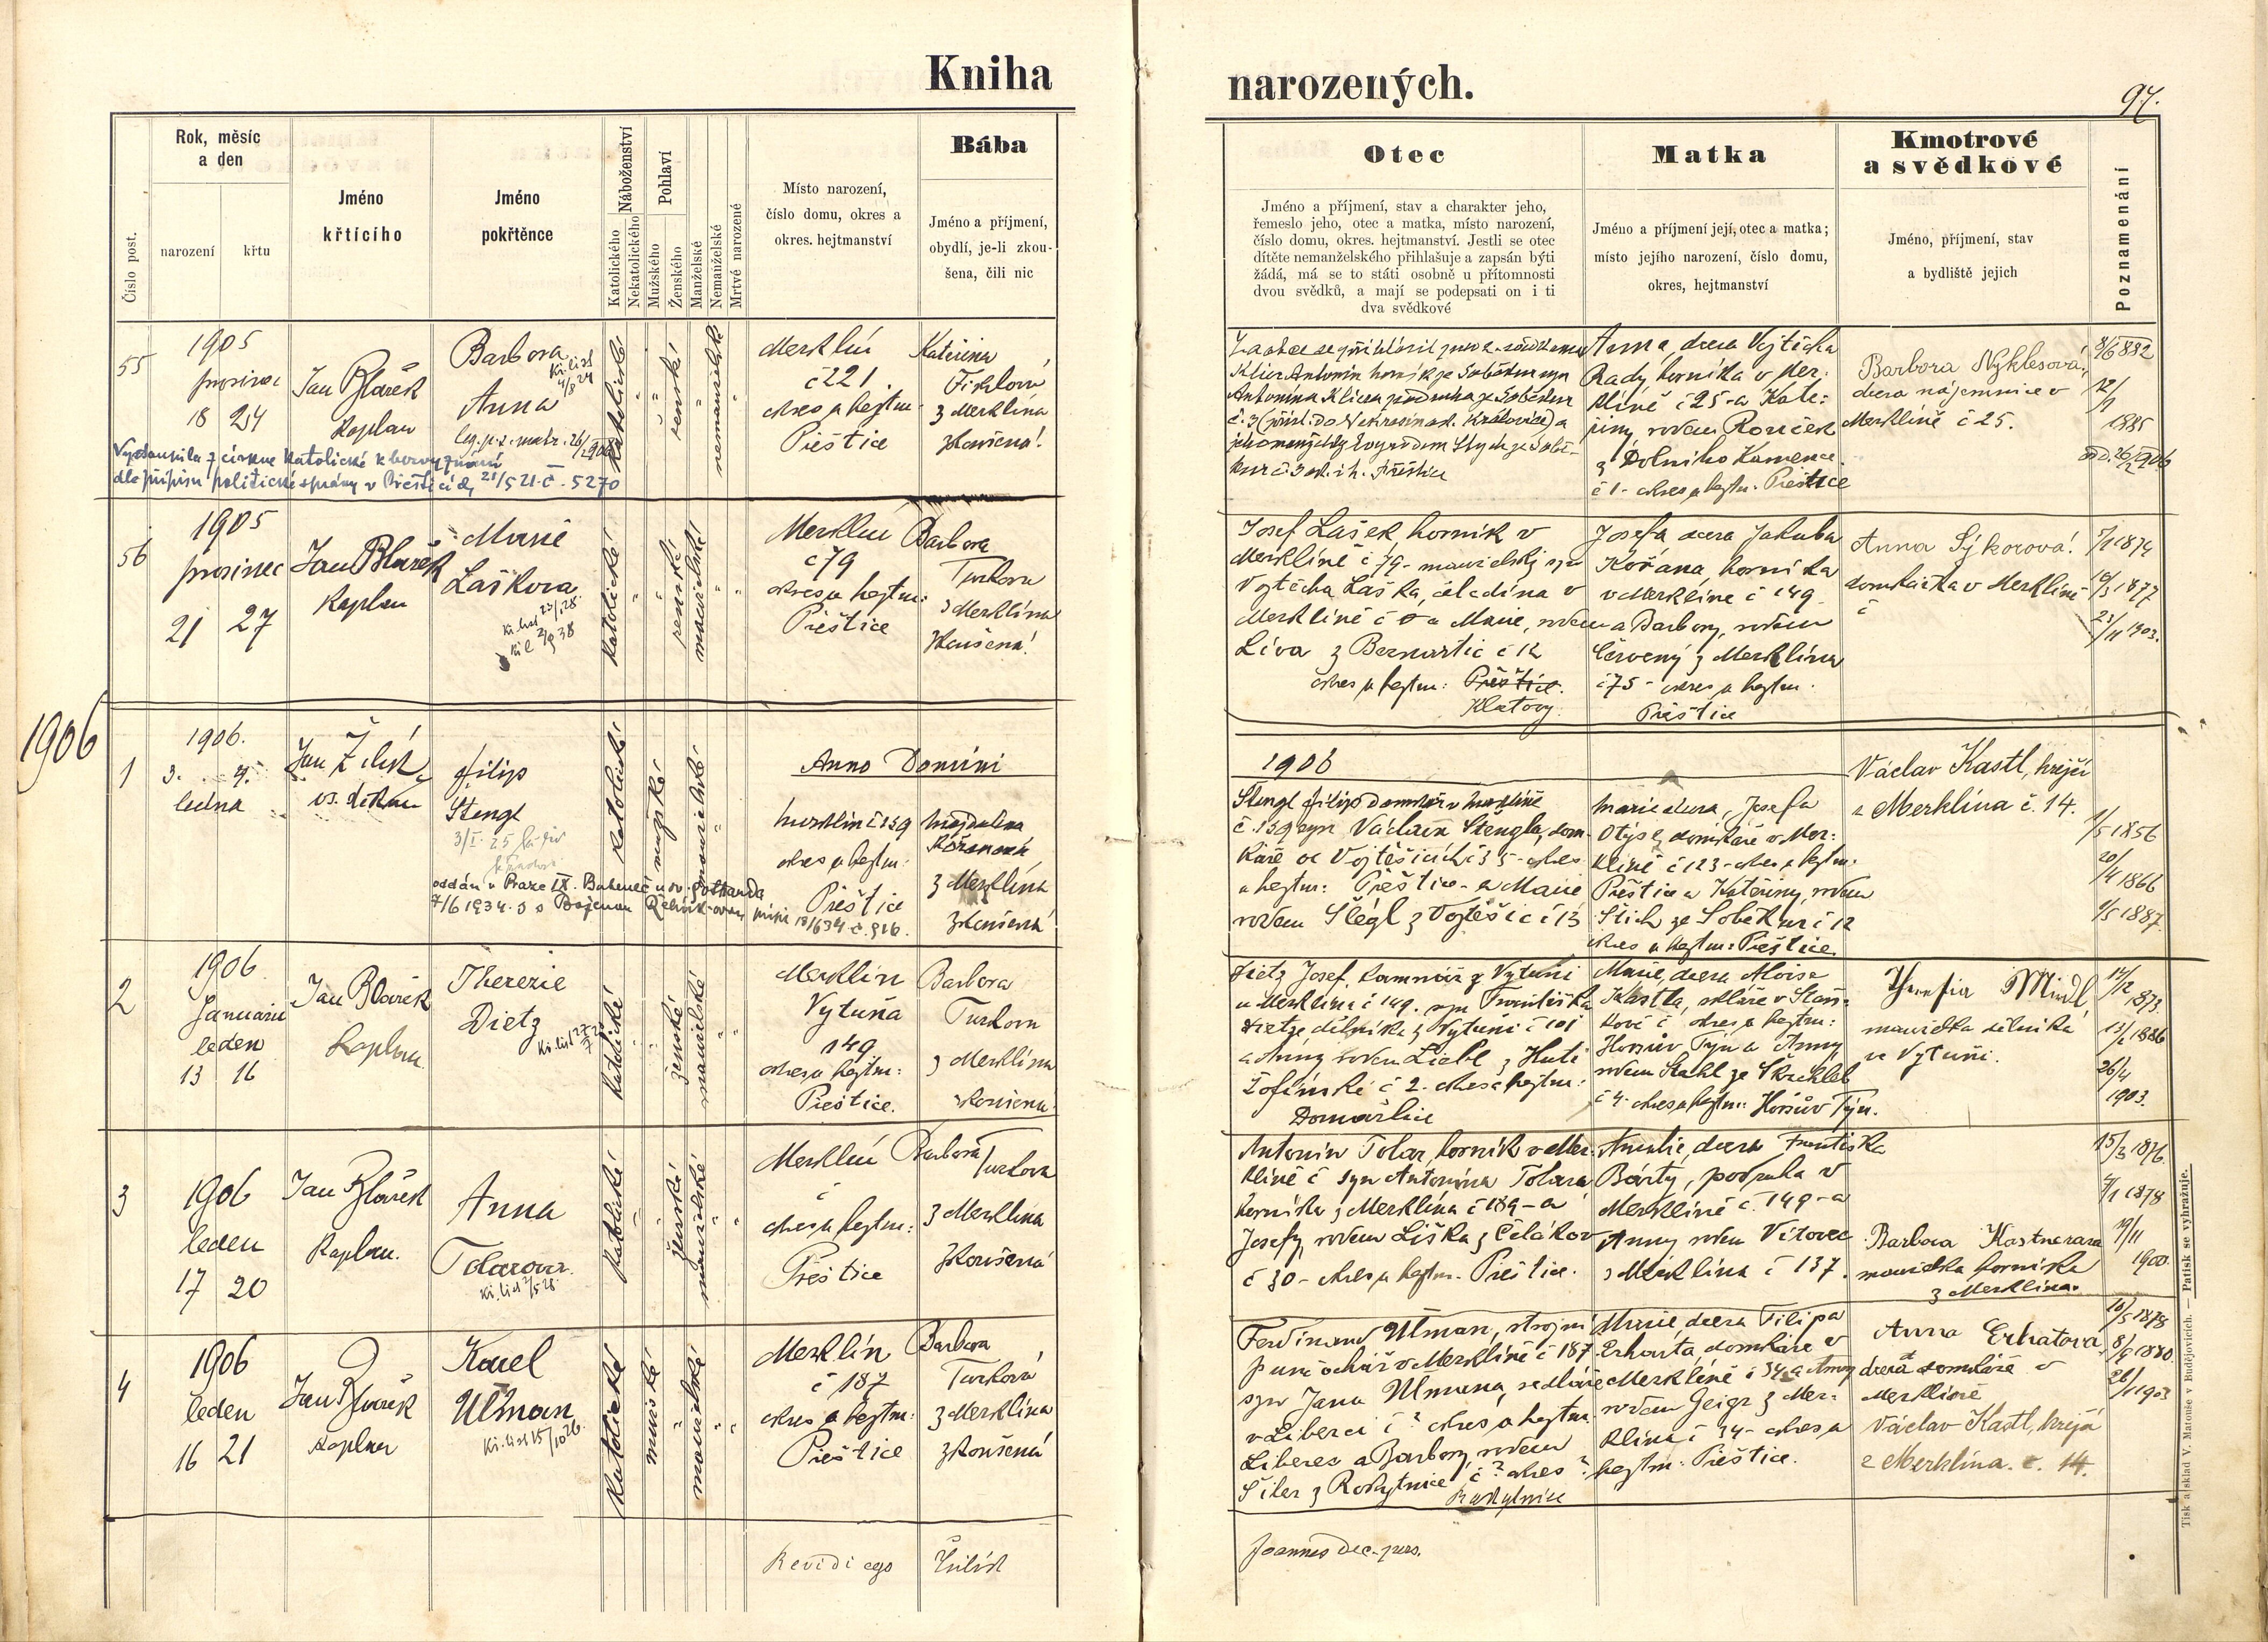 Kniha
narozených.
97.
Číslo post.
Rok, měsíc
a den
narození
křtu
Jméno
křtícího
Jméno
pokřtěnce
Náboženství
Katolického
Nekatolického
Pohlaví
Mužského
Ženského
Manželské
Nemanželské
Mrtvé narozené
Místo narození,
číslo domu, okres a
okres. hejtmanství
Bába
Jméno a příjmení,
obydlí, je-li zkou-
šena, čili nic
Otec
Jméno a příjmení, stav a charakter jeho,
řemeslo jeho, otec a matka, místo narození,
číslo domu, okres. hejtmanství. Jestli se otec
dítěte nemanželského přihlašuje a zapsán býti
žádá, má se to státi osobně u přítomnosti
dvou svědků, a mají se podepsati on i ti
dva svědkové
Matka
Jméno a příjmení její, otec a matka;
místo jejího narození, číslo domu,
okres, hejtmanství
Kmotrové
a svědkové
Jméno, příjmení, stav
a bydliště jejich
Poznamenání
55
1905
prosinec
18 24
Jan Blažek
kaplan
Barbora
Anna
leg. p. s. matr. 26/2 1906
Vystoupila z církve katolické k bezvyznání
dle přípisu politické správy v Přešticích 21/5 21 č. 5270
katolické
ženské
nemanželské
Merklín
č 221.
okres a hejtm.
Přeštice
Kateřina
z Merklína
zkoušená!
Anna, dcera Vojtěcha
Rady, horníka v Mer-
klíně č 25 a Kate-
řiny, rodem
z Dolního Kamence
č 1 - okres a hejtm. Přeštice
Barbora Nyklesová,
dcera nájemnice v
Merklíně č 25.
8/6 882
12/1
1885
odd. 26/2 1906
56
1905
prosinec
21 27
Jan Blažek
kaplan
Marie
Laškova
kř. list 23/1 28
katolické
ženské
manželské
Merklín
č 79
okres a hejtm:
Přeštice
Barbora
Turkova
z Merklína
zkoušená!
Josef Lašek, horník v
Merklíně č 79 - manželský syn
Vojtěcha Laška, čeledína v
Merklíně č 0 a Marie, rodem
Líva z Bernartic č 12
okres a hejtm: Přeštice.
Klatovy
Josefa dcera Jakuba
Kořána, horníka
v Merklíně č 149
a Barbory, rodem
Červený z Merklína
č 75 - okres a hejtm.
Přeštice
Anna Sýkorová!
domkářka v Merklíně
č
7/1 1874
10/3 1877
23/11 1903.
1906
1
1906.
3. 4.
ledna
os. děkan
Filip
Štengl
oddán v Praze IX.
7/6 1934
katolické
mužské
manželské
Anno Domini
Merklín č 139
okres a hejtm:
Přeštice
Majdalena
Kořanová
z Merklína
zkoušená
1906
Štengl Filip domkář v Merklíně
č. 139 syn Václava Štengla, dom-
káře ve Vojtěšicích č 35 - okres
a hejtm: Přeštice - a Marie
rodem Šlégl z Vojtěšic č 13
Marie dcera, Josefa
Otýse, domkáře v Mer-
klíně č 123 - okres a hejtm.
Přeštice a Kateřiny, rodem
Štich ze Soběkur č 12
okres a hejtm: Přeštice.
Václav Kastl, krejčí
z Merklína č. 14.
1/5 1856
20/4 1866
1/5 1887.
2
1906
Januarii
leden
13 16
Jan Blažek
kaplan
Therezie
Dietz
katolické
ženské
manželské
Merklín
Vytuňa
149
okres a hejtm:
Přeštice.
Barbora
Turkova
z Merklína
zkoušená
Dietz Josef, z Vytuni
u Merklína č 149. syn Františka
Dietze dělníka z Vytuni č 101
a Anny rodem Liebl z Huti
Žofínské č 2. okres a hejtm:
Domažlice
Marie, dcera Aloise
Kastla, skláře v Staň-
kově č, okres a hejtm:
Horšův Týn a Anny
rodem Stahl ze
č 4 - okres a hejtm: Horšův Týn.
Theresia Mindl
manželka dělníka
ve Vytuňi.
17/2
1873.
13/2 1886
26/4
1903.
3
1906
leden
17 20
Jan Blažek
kaplan.
Anna
Tolarova.
kř. list 2/5 28.
katolické
ženské
manželské
Merklín
č
okres a hejtm:
Přeštice
Barbora Turkova
z Merklína
zkoušená
Antonín Tolar, horník v Mer-
klíně č syn Antonína Tolara
horníka z Merklína č 189 - a
Josefy, rodem Liška z Čelákov
č 30 - okres a hejtm. Přeštice.
Amalie, dcera Františka
Bárty, podruha v
Merklíně č. 149 - a
Anny rodem Vítovec
z Merklína č 137.
Barbora Kastnerova
manželka horníka
z Merklína.
15/3 1876.
4/1 1878
19/11
1900.
4
1906
leden
16 21
Jan Blažek
kaplan
Karel
Ulman
kř. list 15/10 26.
katolické
mužské
manželské
Merklín
č 187
okres a hejtm:
Přeštice
Barbora
Turková
z Merklína
zkoušená
Ferdinand Ulman, strojní
punčochář v Merklíně č 187
syn Jana Ulmana, sedláře
v Liberci č ? okres a hejtm.
Liberec a Barbory, rodem
Šiler z Rokytnice č ? okres ?
Rokytnice
Marie dcera Filipa
Erharta domkáře v
Merklíně č 34 a Anny
rodem Geigr z Mer-
klína č 34 - okres a
hejtm. Přeštice.
Anna Erhatová,
dcera domkáře v
Merklíně
Václav Kastl, krejčí
z Merklína. č. 14.
10/5 1878
8/9 1880.
26/1 1903
Revidi ego
Joannes dec. pers.
Tisk a sklad V. Matouše v Budějovicích. — Patisk se vyhražuje.